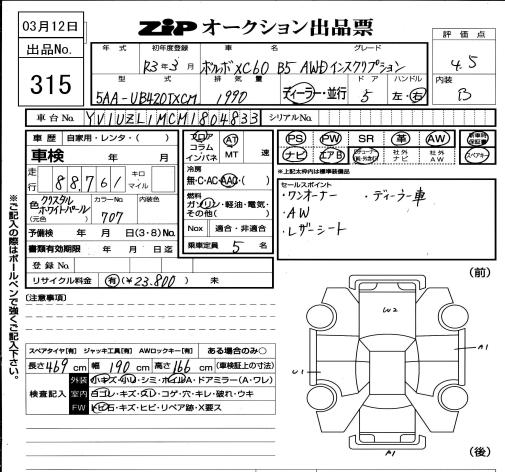 03月12日
ZiP オークション出品票
出品No.
315
評価点
4.5
内装
B
年式 初年度登録 車名 グレード
R3年3月 ボルボ XC60 B5 AWD インスクリプション
型式 排気量 ドア ハンドル
5AA-UB420TXCM 1990 ディーラー・並行 5 左・右
車台No. YV1UZL1MCM1804833 シリアルNo.
車歴 自家用・レンタ・( )
車検 年 月
走行 88,761 キロ マイル
色 クリスタルホワイトパール (元色) カラーNo. 707 内装色
予備検 年 月 日(3・8)No.
書類有効期限 年 月 日迄
登録No.
リサイクル料金 有 (¥23.800) 未
フロア コラム インパネ AT MT 速
冷房
無・C・AC・AAC・( )
燃料
ガソリン・軽油・電気・その他( )
Nox 適合・非適合
乗車定員 5 名
PS PW SR 革 AW 新車時保証書
ナビ エアB 社外ナビ 社外AW スペアキー
*上記太枠内は標準装備品
セールスポイント
・ワンオーナー ・ディーラー車
・AW
・レザーシート
※ご記入の際はボールペンで強くご記入下さい。
(注意事項)
スペアタイヤ[有] ジャッキ工具[有] AWロックキー[有] ある場合のみ○
長さ 469 cm 幅 190 cm 高さ 166 cm (車検証上の寸法)
検査記入
外装 小キズ・小U・シミ・ホイルA・ドアミラー(A・ワレ)
室内 ヨゴレ・キズ・スレ・コゲ・穴・キレ・破れ・ウキ
FW トビ石・キズ・ヒビ・リペア跡・X要ス
(前)
W2
A1
U1
A1
(後)